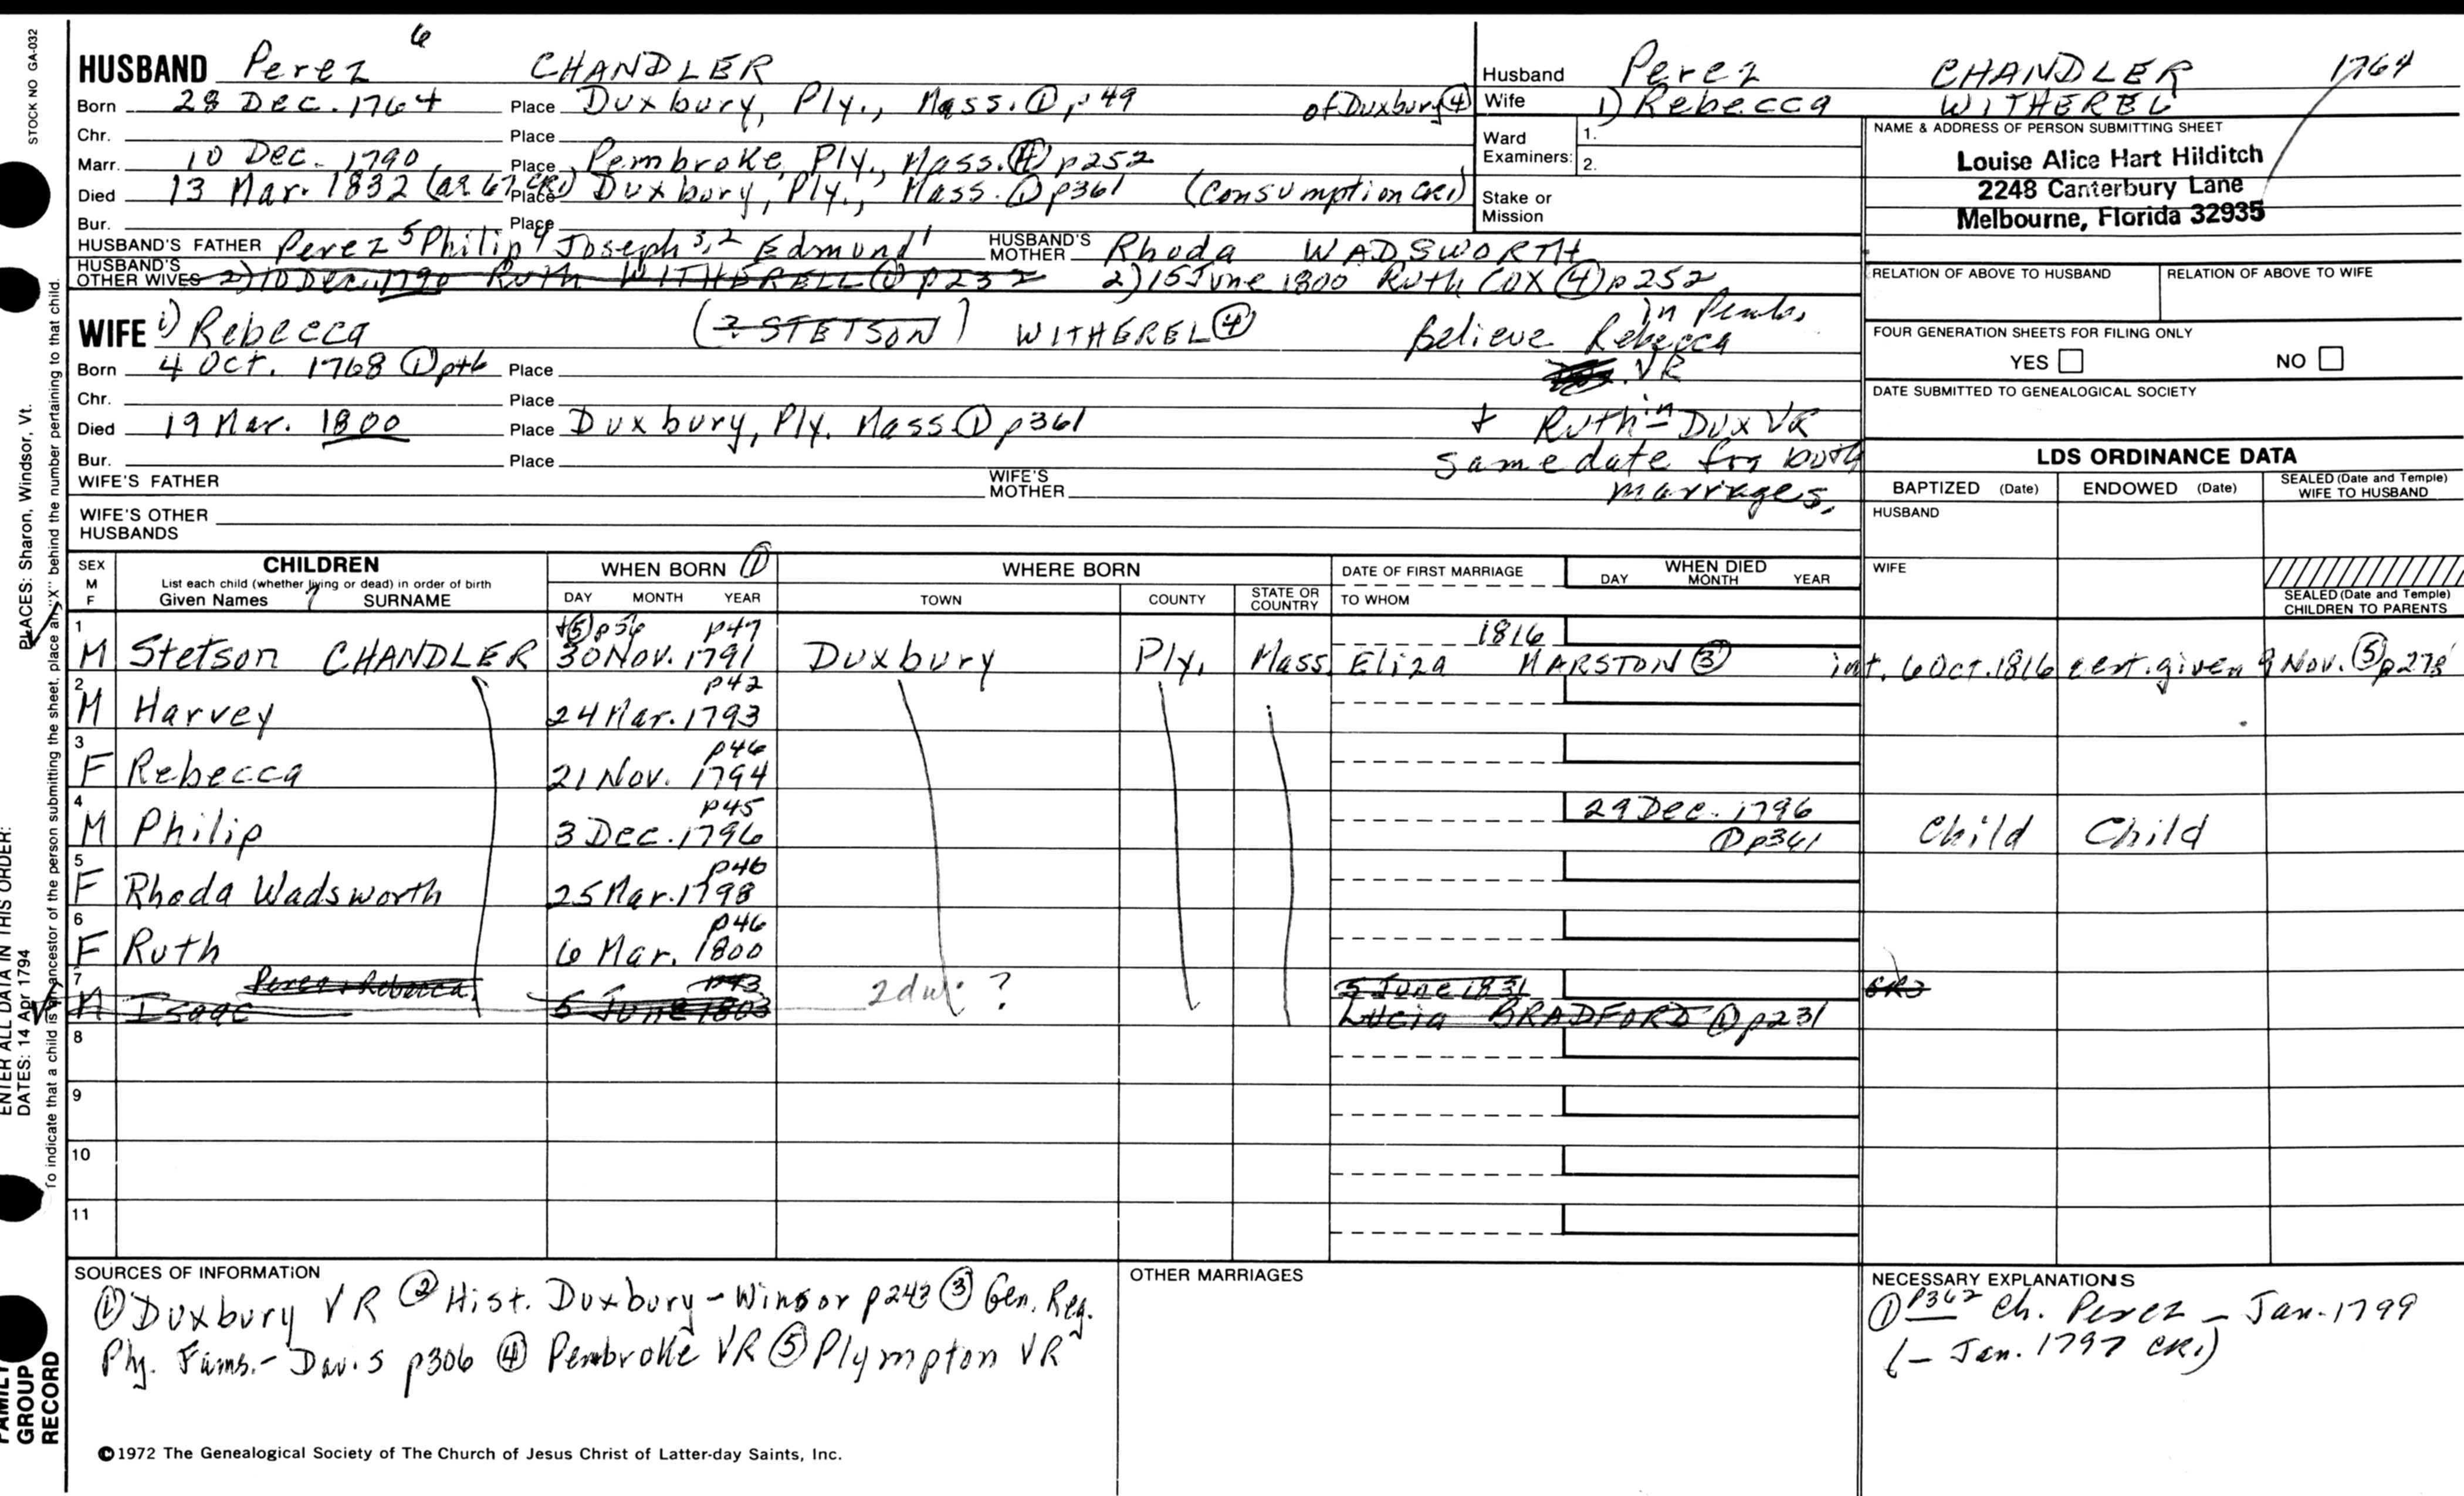 STOCK NO GA-032
PLACES: Sharon, Windsor, Vt.
ENTER ALL DATA IN THIS ORDER:
DATES: 14 Apr 1794
To indicate that a child is an ancestor of the person submitting the sheet, place an "X" behind the number pertaining to that child.
FAMILY GROUP RECORD
6
HUSBAND Perez CHANDLER
Born 28 Dec. 1764 Place Duxbury, Ply., Mass. ① p49 of Duxbury ④
Chr. Place
Marr. 10 Dec. 1790 Place Pembroke, Ply., Mass. ④ p252
Died 13 Mar. 1832 (ae 67 CR1) Place Duxbury, Ply., Mass. ① p361 (Consumption CR1)
Bur. Place
HUSBAND'S FATHER Perez 5 Philip 4 Joseph 3,2 Edmund 1 HUSBAND'S MOTHER Rhoda WADSWORTH
HUSBAND'S OTHER WIVES 2) 10 Dec. 1790 Ruth WITHERELL ① p232 2) 15 June 1800 Ruth COX ④ p252
in Pemb.
WIFE 1) Rebecca (? STETSON) WITHEREL ④ Believe Rebecca
VR
Born 4 Oct. 1768 ① p46 Place
Chr. Place
Died 19 Mar. 1800 Place Duxbury, Ply. Mass ① p361
+ Ruth in Dux VR
same date for both
marriages.
Bur. Place
WIFE'S FATHER WIFE'S MOTHER
WIFE'S OTHER HUSBANDS
Husband Perez CHANDLER 1764
Wife 1) Rebecca WITHEREL
Ward Examiners: 1.
2.
Stake or Mission
NAME & ADDRESS OF PERSON SUBMITTING SHEET
Louise Alice Hart Hilditch
2248 Canterbury Lane
Melbourne, Florida 32935
RELATION OF ABOVE TO HUSBAND RELATION OF ABOVE TO WIFE
FOUR GENERATION SHEETS FOR FILING ONLY
YES NO
DATE SUBMITTED TO GENEALOGICAL SOCIETY
LDS ORDINANCE DATA
BAPTIZED (Date) ENDOWED (Date) SEALED (Date and Temple) WIFE TO HUSBAND
HUSBAND
WIFE
SEALED (Date and Temple) CHILDREN TO PARENTS
SEX M F CHILDREN WHEN BORN ① WHERE BORN DATE OF FIRST MARRIAGE WHEN DIED
List each child (whether living or dead) in order of birth
Given Names 7 SURNAME DAY MONTH YEAR TOWN COUNTY STATE OR COUNTRY TO WHOM DAY MONTH YEAR
+⑤ p56 p47 1816
1 M Stetson CHANDLER 30 Nov. 1791 Duxbury Ply. Mass Eliza MARSTON ③ int. 6 Oct. 1816 cert. given 9 Nov. ⑤ p278
p42
2 M Harvey 24 Mar. 1793
p46
3 F Rebecca 21 Nov. 1794
p45 29 Dec. 1796
4 M Philip 3 Dec. 1796 ① p361 Child Child
p46
5 F Rhoda Wadsworth 25 Mar. 1798
p46
6 F Ruth 6 Mar. 1800
Perez + Rebecca p43 5 June 1831 CR3
7 M Isaac 5 June 1803 2d w. ? Lucia BRADFORD ① p231
8
9
10
11
SOURCES OF INFORMATION
① Duxbury VR ② Hist. Duxbury - Winsor p243 ③ Gen. Reg.
Ply. Fams. - Davis p306 ④ Pembroke VR ⑤ Plympton VR
OTHER MARRIAGES
NECESSARY EXPLANATIONS
① p362 Ch. Perez - Jan. 1799
(- Jan. 1797 CR1)
©1972 The Genealogical Society of The Church of Jesus Christ of Latter-day Saints, Inc.